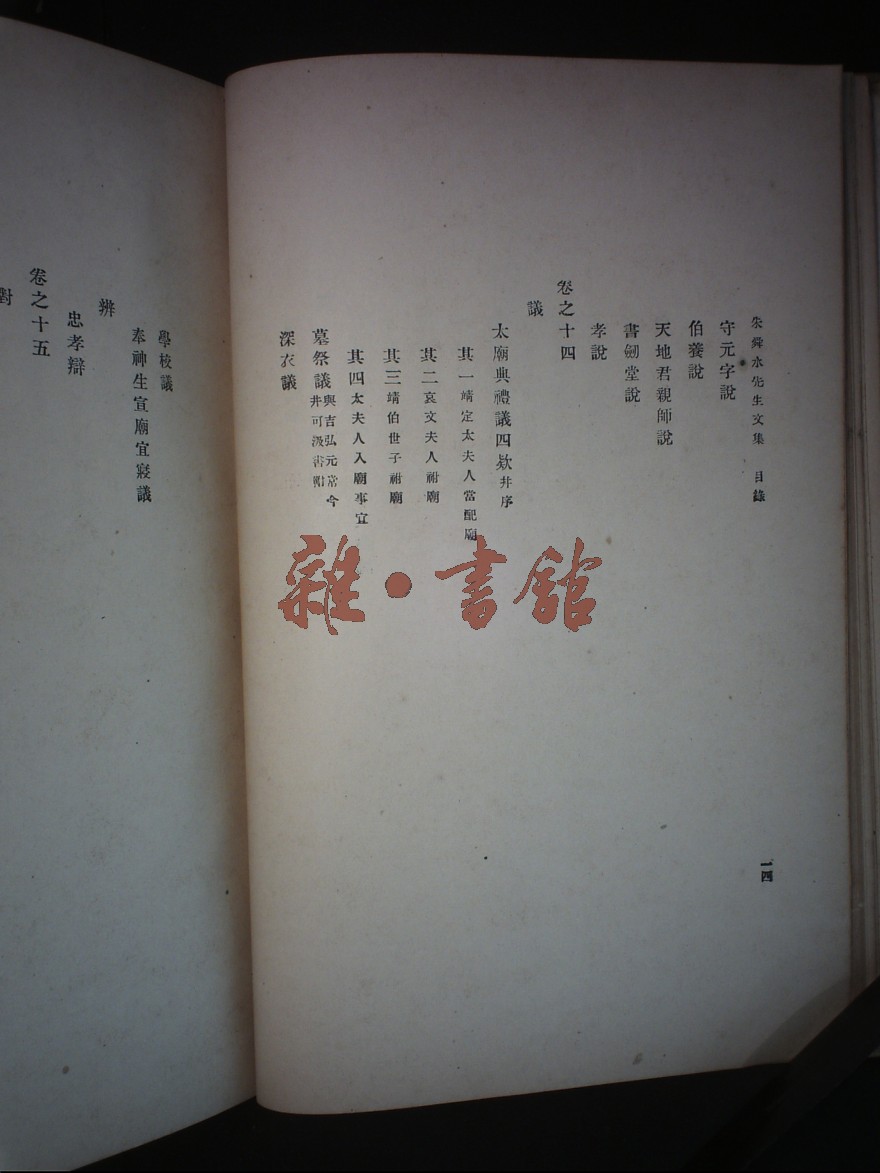 朱舜水先生文集 目錄
守元字說
伯養說
天地君親師說
書劒堂說
孝說
卷之十四
議
太廟典禮議四欵幷序
其一靖定太夫人當配廟
其二哀文夫人祔廟
其三靖伯世子祔廟
其四太夫人入廟事宜
墓祭議與吉弘元常今
井可汲書
深衣議
一四
學校議
奉神主宣廟宜寢議
辨
忠孝辯
卷之十五
對
雜·書館